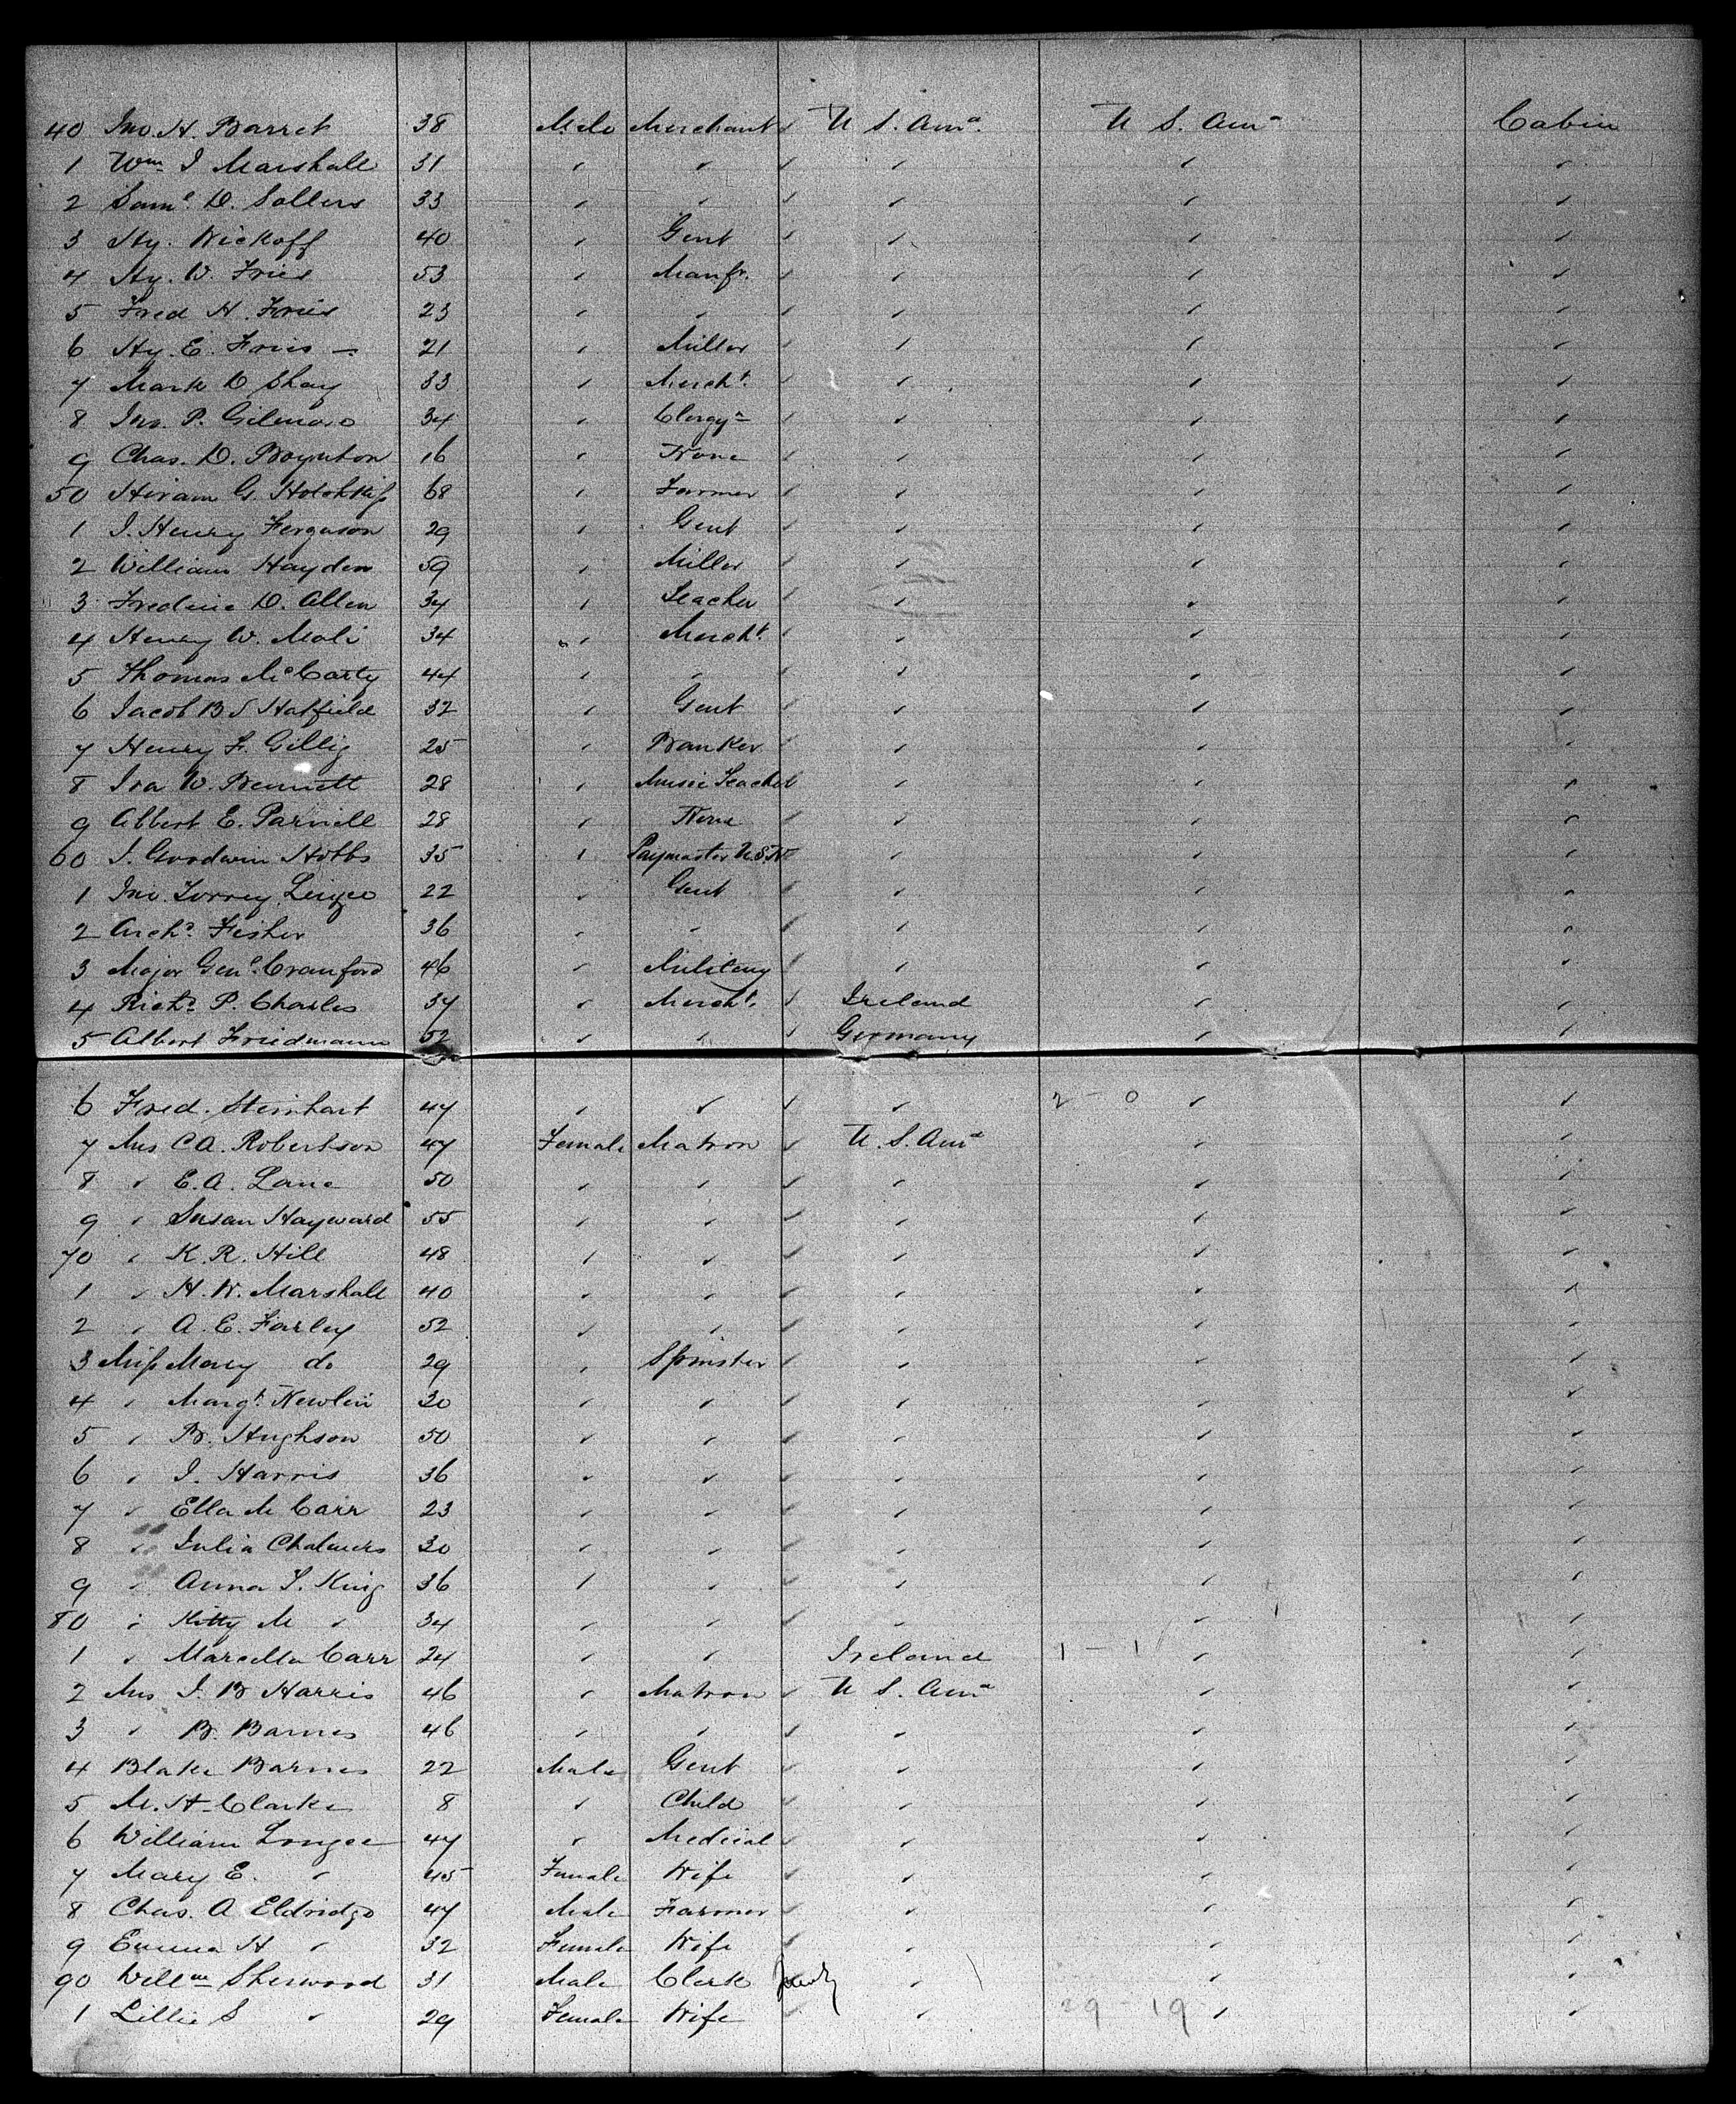 40 Jno. H. Barret 38 Male Merchant U S. Ama. U S. Ama Cabin
1 Wm I Marshall 31 " " " " "
2 Saml. D. Sollers 33 " " " " "
3 Hy. Wickoff 40 " Gent " " "
4 Hy. W. Fries 53 " Manfr. " " "
5 Fred H. Fries 23 " " " " "
6 Hy. E. Fries — 21 " Miller " " "
7 Mark D Shay 33 " Mercht. " " "
8 Jno. P. Gilmore 34 " Clergyn " " "
9 Chas. D. Boynton 16 " None " " "
50 Hiram G. Hotchkiss 68 " Farmer " " "
1 J. Henry Ferguson 29 " Gent " " "
2 William Hayden 59 " Miller " " "
3 Frederic D. Allen 34 " Teacher " " "
4 Henry W. Mali 34 " Mercht. " " "
5 Thomas McCarty 44 " " " " "
6 Jacob B S Hatfield 32 " Gent " " "
7 Henry F. Gillig 25 " Banker " " "
8 Ira W. Bennett 28 " Music Teacher " " "
9 Albert E. Parnell 28 " None " " "
60 J. Goodwin Hobbs 35 " Paymaster U.S.N " " "
1 Jno. Torrey 22 " Gent " " "
2 Archd. Fisher 36 " " " " "
3 Major Genl. Crawford 46 " Military " " "
4 Richd. P. Charles 37 " Mercht. Ireland " "
5 Albert Friedmann 52 " " Germany " "
6 Fred. Steinhart 47 " " " 2 - 0 " "
7 Mrs C A. Robertson 47 Female Matron U. S. Ama " "
8 " E. A. Lane 50 " " " " "
9 " Susan Hayward 55 " " " " "
70 " K. R. Hill 48 " " " " "
1 " H. W. Marshall 40 " " " " "
2 " A. E. Farley 52 " " " " "
3 Miss Mary do 29 " Spinster " " "
4 " Margt. Newlin 30 " " " " "
5 " B. Hughson 50 " " " " "
6 " J. Harris 36 " " " " "
7 " Ella M Carr 23 " " " " "
8 " Julia Chalmers 30 " " " " "
9 " Anna S. King 36 " " " " "
80 " Kitty M " 34 " " " " "
1 " Marcella Carr 24 " " Ireland 1 - 1 " "
2 Mrs J. B Harris 46 " Matron U S. Ama " "
3 " B. Barnes 46 " " " " "
4 Blake Barnes 22 Male Gent " " "
5 M. H. Clarke 8 " Child " " "
6 William Longee 47 " Medical " " "
7 Mary E. " 45 Female Wife " " "
8 Chas. A Eldridge 47 Male Farmer " " "
9 Emma H " 32 Female Wife " " "
90 Willm Sherwood 31 Male Clerk " " "
1 Lillie S " 29 Female Wife " 29 - 19 " "